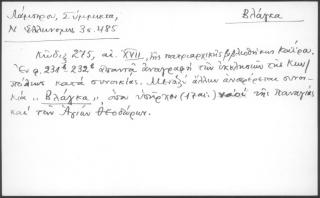 Λάμπρου, Σύμμικτα,
Βλάγκα
Ν. Ἑλληνομν. 3 σ. 485
Κώδιξ 275, αἰ. XVII, τῆς πατριαρχικῆς βιβλιοθήκης Καΐρου.
Ἐν φ. 231β-232β ἀπαντᾷ ἀναγραφὴ τῶν ἐκκλησιῶν τῆς Κων/
πόλεως κατὰ συνοικίας. Μεταξὺ ἄλλων ἀναφέρεται συνοι-
κία „Βλάγκα" ὅπου ὑπῆρχον (17 αἰ.) ναοὶ τῆς Παναγίας
καὶ τῶν Ἁγίων Θεοδώρων.